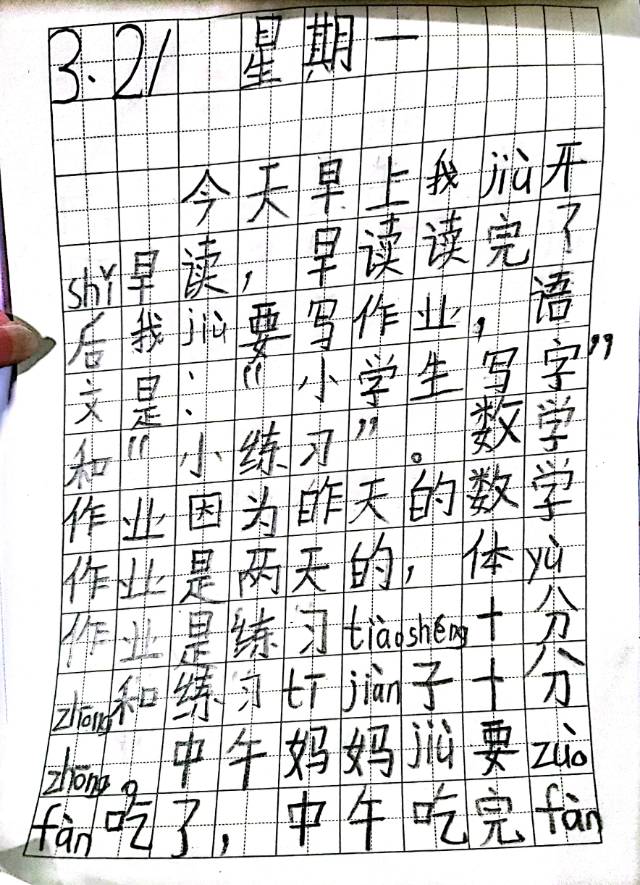 3.21 星期一
今天早上我jiù开
shǐ早读，早读读完了
后我jiù要写作业，语
文是：“小学生写字”
和“小练习”。数学
作业因为昨天的数学
作业是两天的，体yù
作业是练习tiàoshéng十分
zhōng和练习tī jiàn子十分
zhōng。中午妈妈jiù要zuò
fàn吃了，中午吃完fàn